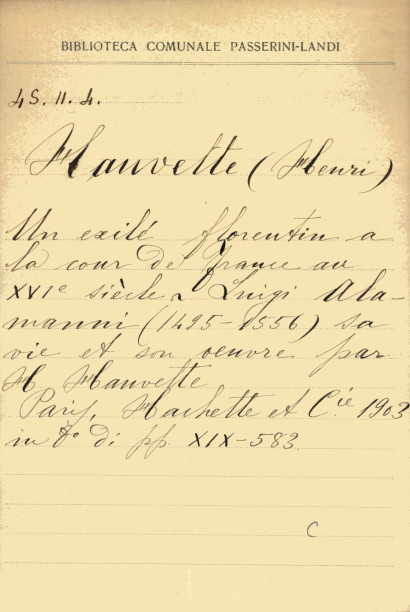 BIBLIOTECA COMUNALE PASSERINI-LANDI
4S. II. 4.
Hauvette (Henri)
Un exilé florentin a
la cour de france au
XVIe siècle ~ Luigi Ala-
manni (1495-1556) sa
vie et son oeuvre par
H Hauvette
Paris, Hachette et Cie 1903
in 8° di pp. XIX-583
C